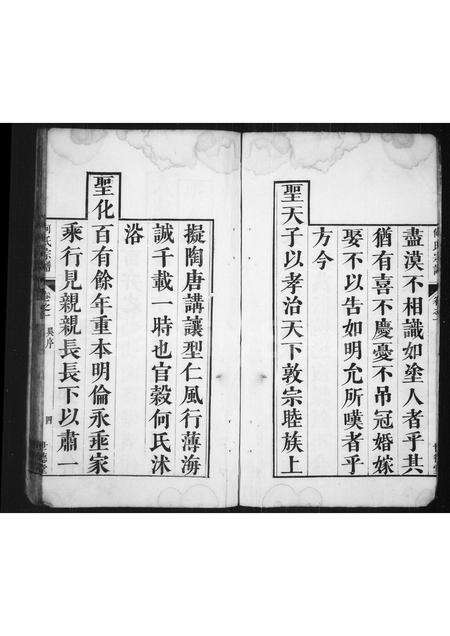 盡漠不相識如塗人者乎其
猶有喜不慶憂不吊冠婚嫁
娶不以告如明允所嘆者乎
方今
聖天子以孝治天下敦宗睦族上
擬陶唐講讓型仁風行薄海
誠千載一時也官穀何氏沐
浴
聖化百有餘年重本明倫永乘家
乘行見親親長長下以肅一
何氏宗譜
卷之一
吳序
四